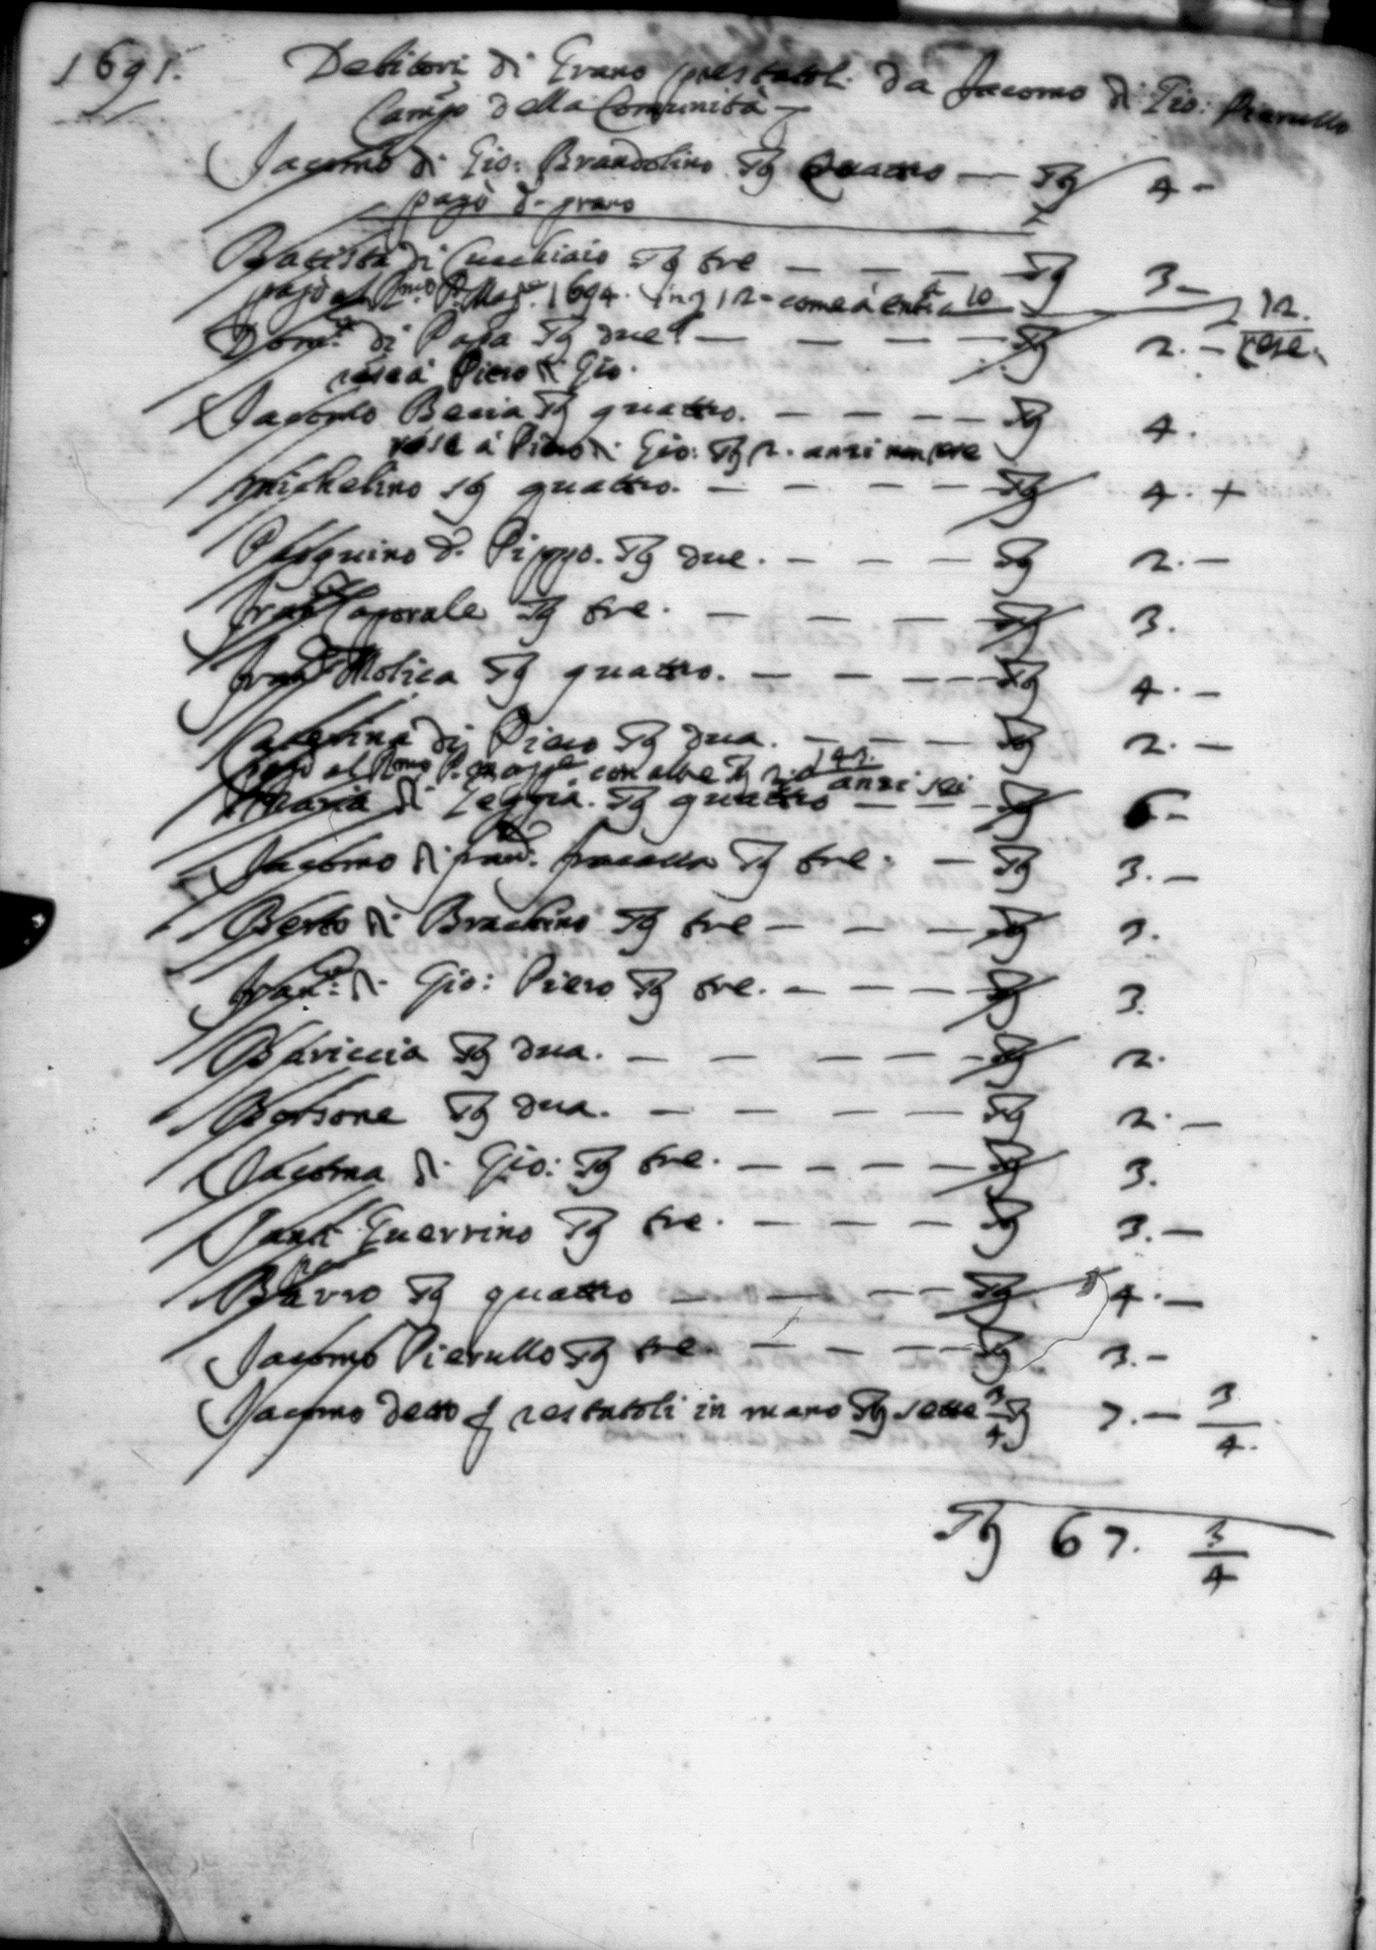 1691.
Debitori di Grano prestatoli da Jacomo di Gio: Pierullo
Camgo della Comunità
Jacomo di Gio: Brandolino Sg Quattro — Sg 4 -
pagò d. grano
Batista di Cucchiaio Sg tre — — — — Sg 3 -
pagò al Rmo P. Mag.re 1694. in g 12 - come à entta 10 12.
Domco di Papa Sg due — — — — Sg 2. - rese.
rese à Piero di Gio.
Jacomo Becia Sg quattro. — — — — Sg 4.
rese à Piero di Gio: Sg 2. anzi non rese
Michelino Sg quattro. — — — — Sg 4. +
Pasquino d. Pippo. Sg due. — — — Sg 2. —
Franco Caporale Sg tre. — — — — Sg 3.
Franco Molica Sg quattro. — — — — Sg 4. —
Caterina di Piero Sg dua. — — — — Sg 2. —
pagò al Rmo P. Mag.re con altre Sg 2. anzi sei
Maria di Sg quattro — — — Sg 6 -
Jacomo di Franco Sg tre. — Sg 3. —
Berto di Brachino Sg tre — — — — Sg 3.
Franco di Gio: Piero Sg tre. — — — — Sg 3.
Bariccia Sg dua. — — — — — Sg 2.
Borsone Sg dua. — — — — Sg 2. —
Jacoma di Gio: Sg tre. — — — — Sg 3.
Santi Guerrino Sg tre. — — — Sg 3. —
Sg quattro — — — — Sg 4. —
Jacomo Pierullo Sg tre. — — — — Sg 3. -
Jacomo detto p restatoli in mano Sg sette 3/4 Sg 7. — 3/4.
Sg 67. 3/4